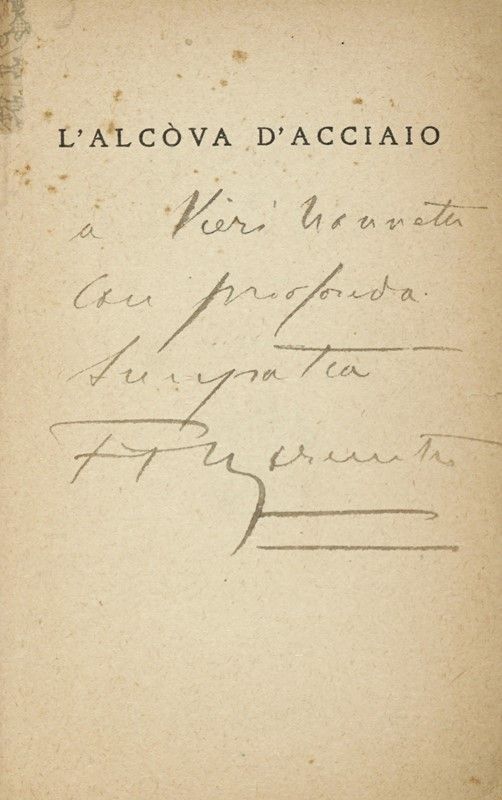 L'ALCÒVA D'ACCIAIO
a Vieri Nannetti
con profonda
simpatia
FT Marinetti